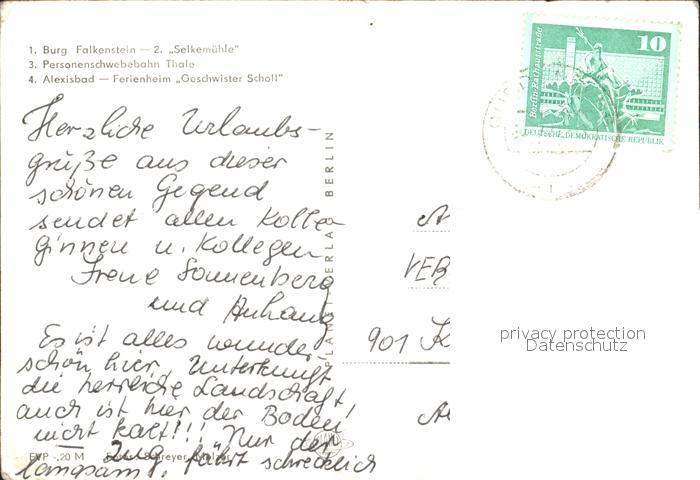 1. Burg Falkenstein — 2. „Selkemühle"
3. Personenschwebebahn Thale
4. Alexisbad — Ferienheim „Geschwister Scholl"
Berlin-Rathausstraße
10
DEUTSCHE DEMOKRATISCHE REPUBLIK
Herzliche Urlaubs-
grüße aus dieser
schönen Gegend
sendet allen Kolle-
ginnen u. Kollegen
Irene Sonnenberg
und Anhang
Es ist alles wunder-
schön hier, Unterkunft
die herrliche Landschaft,
auch ist hier der Boden
nicht kalt!!! Nur der
Zug fährt schrecklich
langsam.
BERLIN
VEB
901 K
privacy protection
Datenschutz
EVP -,20 M